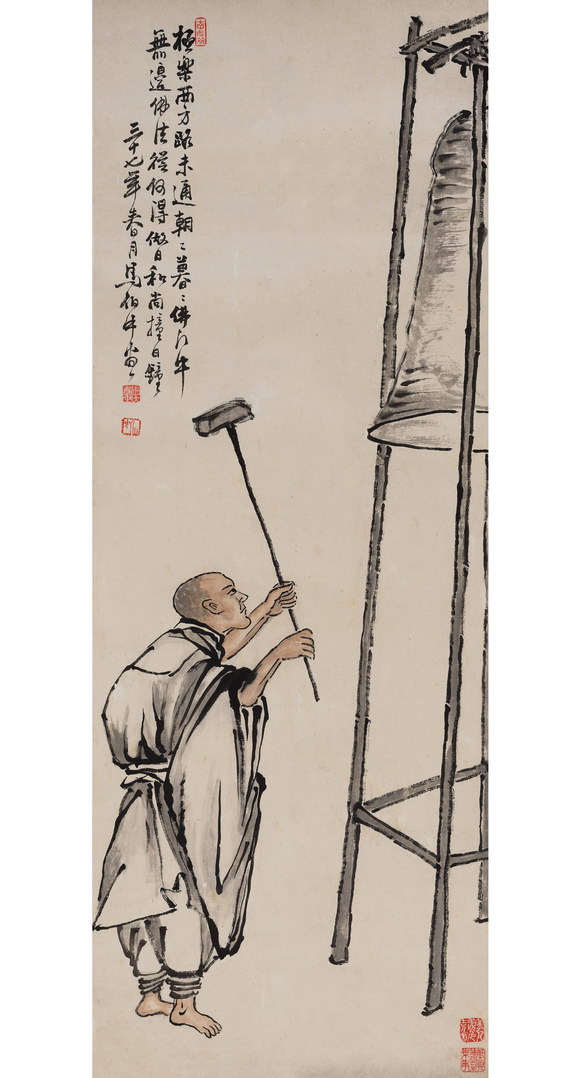 極樂西方路未通朝〻暮〻佛
無邊佛法從何得做日和尚撞日鐘
三十七年春月馬伯